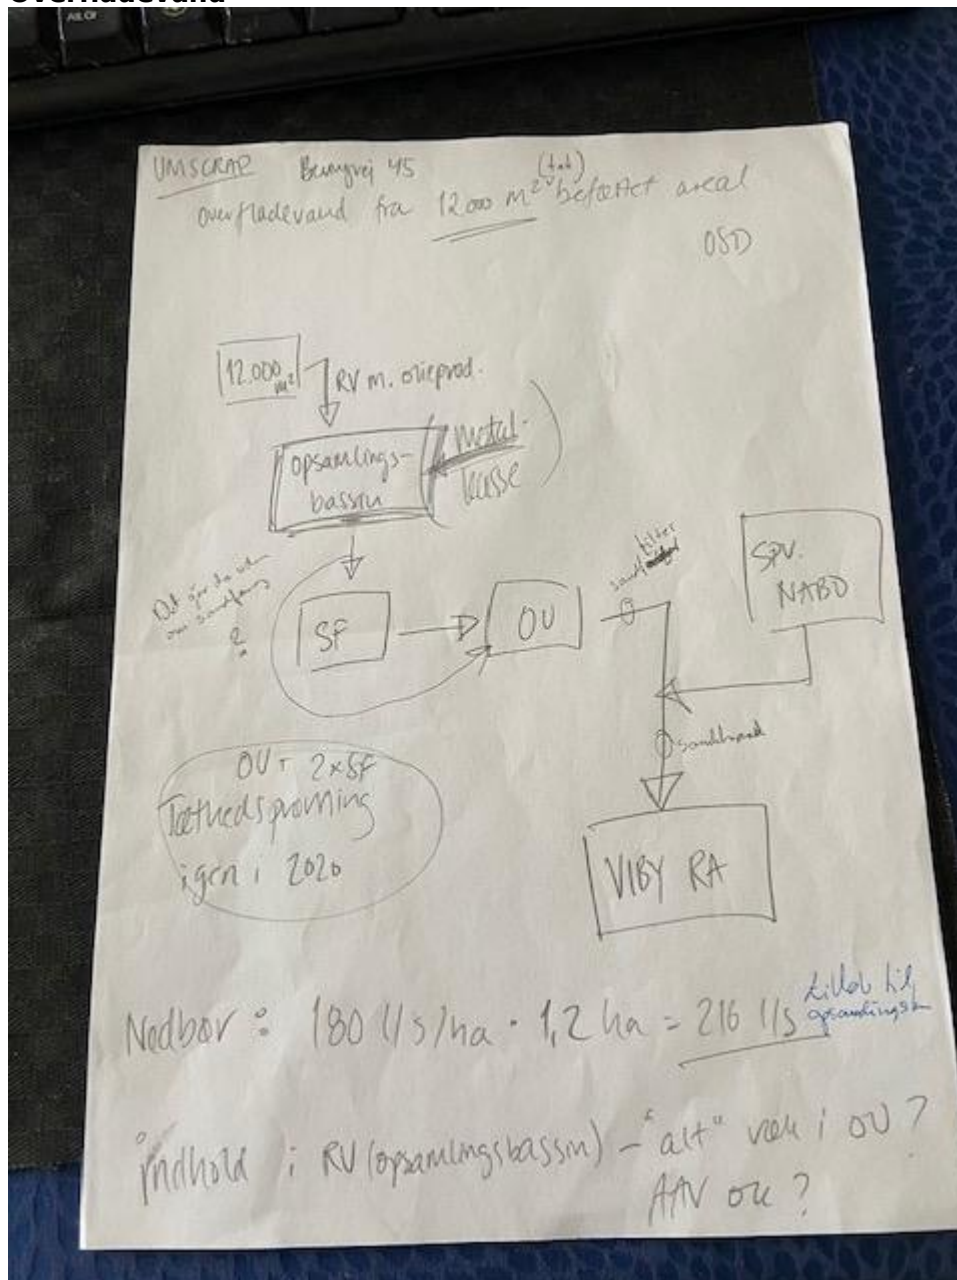 Overfladevand
UMSCRAP Bungvej 45 (tæt)
overfladevand fra 12.000 m² befæstet areal
OSD
12.000 m²
RV m. olieprod.
opsamlings-
bassin
metal-
kasse
SF
OV
sandfilter
SPV.
NABO
?
sandhand
VIBY RA
OV + 2xSF
Tæthedsprøvning
igen i 2020
Nedbør: 180 l/s/ha · 1,2 ha = 216 l/s
tilløb til
Indhold i RV (opsamlingsbassin) - "alt" væk i OV?
AAV ok?